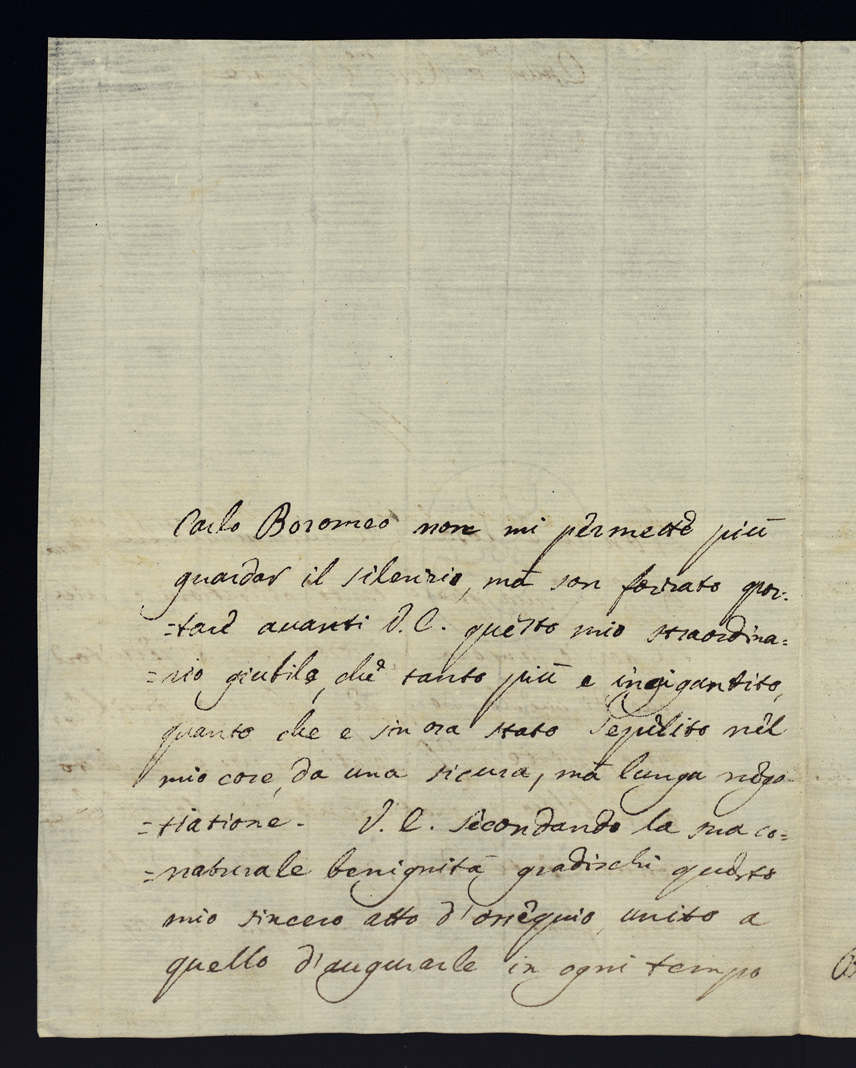 Carlo Boromeo non mi permette più
guardar il silenzio, mà son forzato por:
=tare avanti V.E. questo mio straordina=
=rio giubilo, che tanto più e ingigantito,
quanto che e sin ora stato sepelito nel
mio core, da una sicura, mà lunga nego
=tiatione. V.E. secondando la sua co=
=naturale benignità gradischi questo
mio sincero atto d'ossequio, unito a
quello d'augurarle in ogni tempo